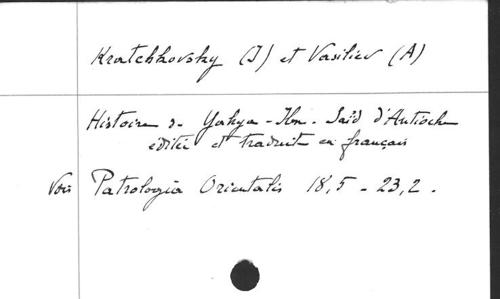 Kratchkovsky (I) et Vasiliev (A)
Histoire de Yahya-Ibn-Saïd d'Antioche
éditée et traduite en français
Voir Patrologia Orientalis 18,5 - 23,2.